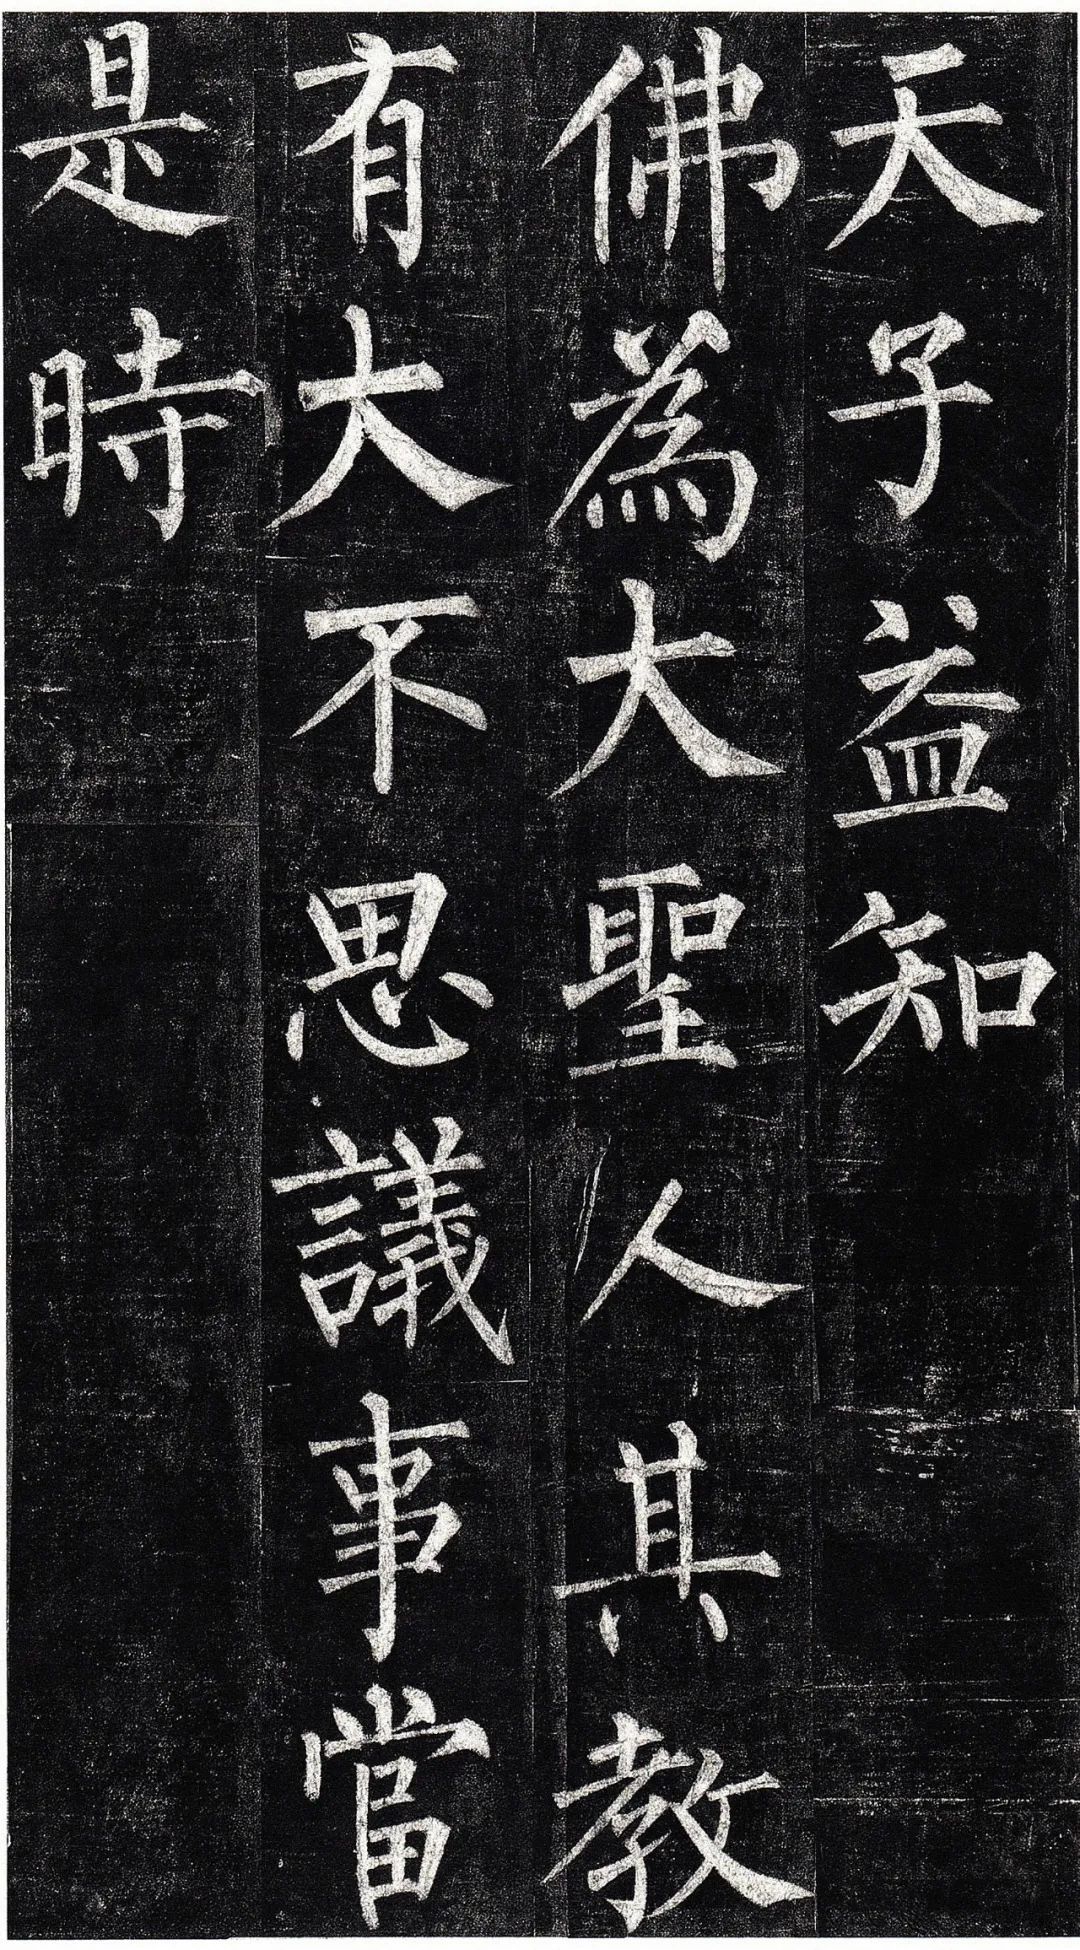 天子益知
佛為大聖人其教
有大不思議事當
是時